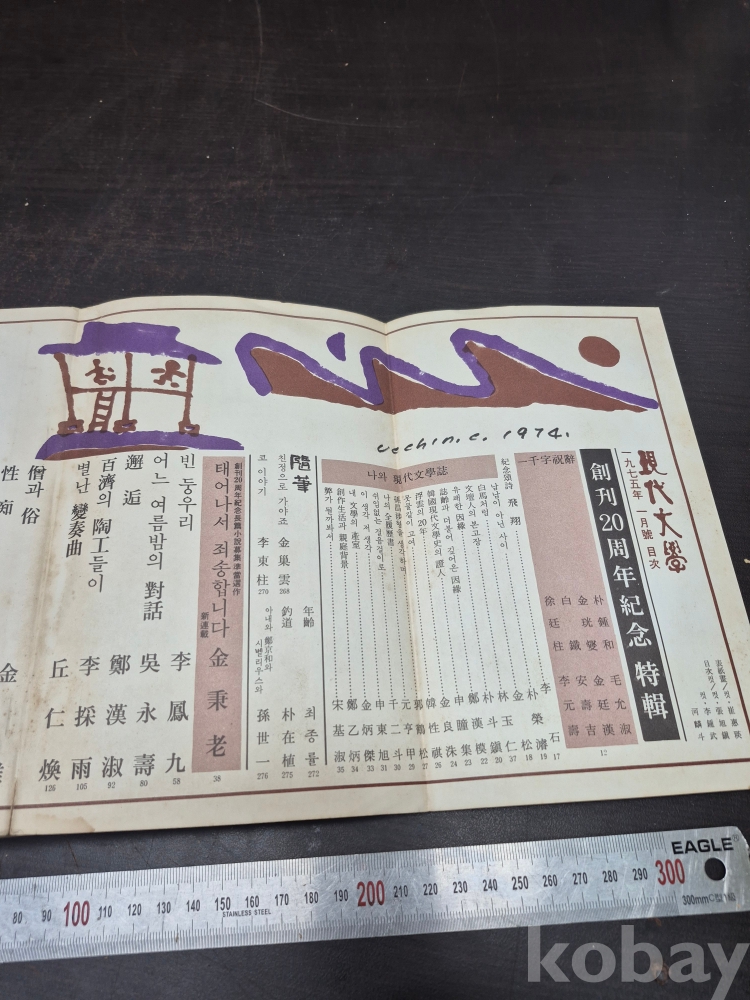 現代文學
一九七五年 一月號 目次
創刊20周年紀念 特輯
一千字祝辭
朴鍾和 毛允淑
金珖燮 金廷漢
安壽吉
白鐵 李元壽
徐廷柱
12
紀念頌詩 飛翔
李
石 17
나와 現代文學誌
남남이 아닌 사이
白馬처럼
文壇人의 본고장
유쾌한 因緣
誌齡과 더불어 깊어온 因緣
韓國現代文學史의 證人
浮雲의 20年
나의 全履歷書
이 생각 저 생각
내 文學의 産室
創作生活과 親庭背景
朴榮濬 19
林玉仁 37
朴斗鎭 20
鄭漢模 22
申瞳集 23
金良洙 24
韓性祺 26
郭鶴松 27
千二斗 30
申東旭 31
金炳傑 33
鄭乙炳 34
宋基淑 35
隨筆
친정으로 가야죠 金巢雲 268
코 이야기 李東柱 270
年齡 최종률 272
釣道 朴在植 275
아내와 鄭京和와 시벨리우스와 孫世一 276
創刊20周年紀念長篇小說募集準當選作
태어나서 죄송합니다 金秉老 38
新連載
빈 둥우리 李鳳九 58
어느 여름밤의 對話 吳永壽 80
邂逅 鄭漢淑 92
百濟의 陶工들이 李採雨 105
별난 變奏曲 丘仁煥 126
僧과 俗
性痴
金
uechin.c. 1974.
80 90 100 110 120 130 140 150 160 170 180 190 200 210 220 230 240 250 260 270 280 290 300
STAINLESS STEEL
EAGLE
300mm
kobay